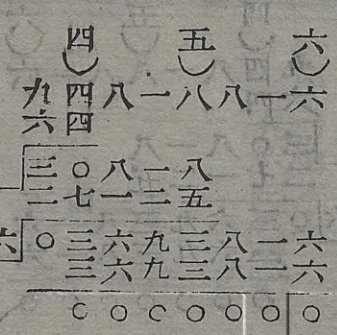 四)五)六)
九四八一八八一六
六四
三〇八一八
二七一二五
六〇三六九三八一六
三六九三八一六
〇〇〇〇〇〇〇